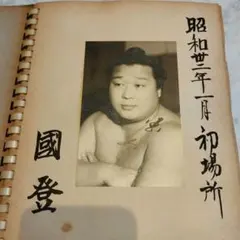 昭和卅二年一月初場所
國登